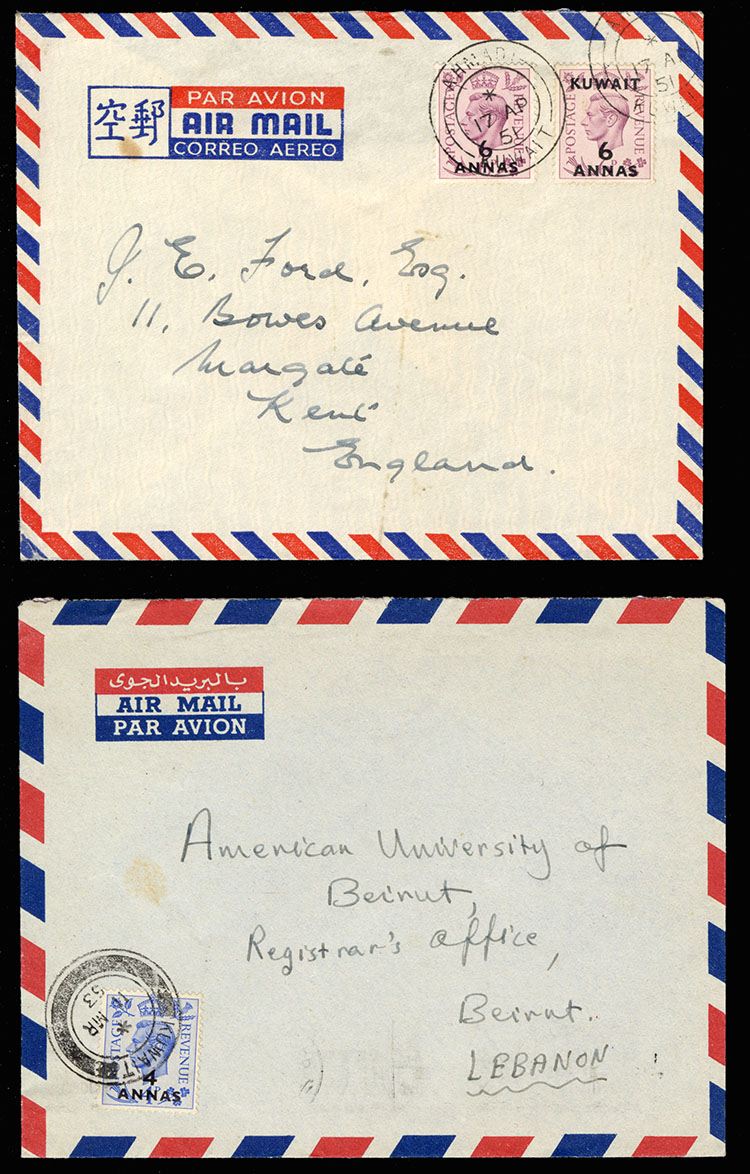 空郵
PAR AVION
AIR MAIL
CORREO AEREO
POSTAGE
REVENUE
6
ANNAS
AHMADI
*
17 AP
51
KUWAIT
KUWAIT
POSTAGE
REVENUE
6
ANNAS
*
17 A
51
J. E. Ford, Esq.
11, Bowes Avenue
Margate
Kent
England.
بالبريد الجوى
AIR MAIL
PAR AVION
American University of
Beirut,
Registrar's office,
Beirut.
LEBANON
KUWAIT
*
MR
53
REVENUE
4
ANNAS